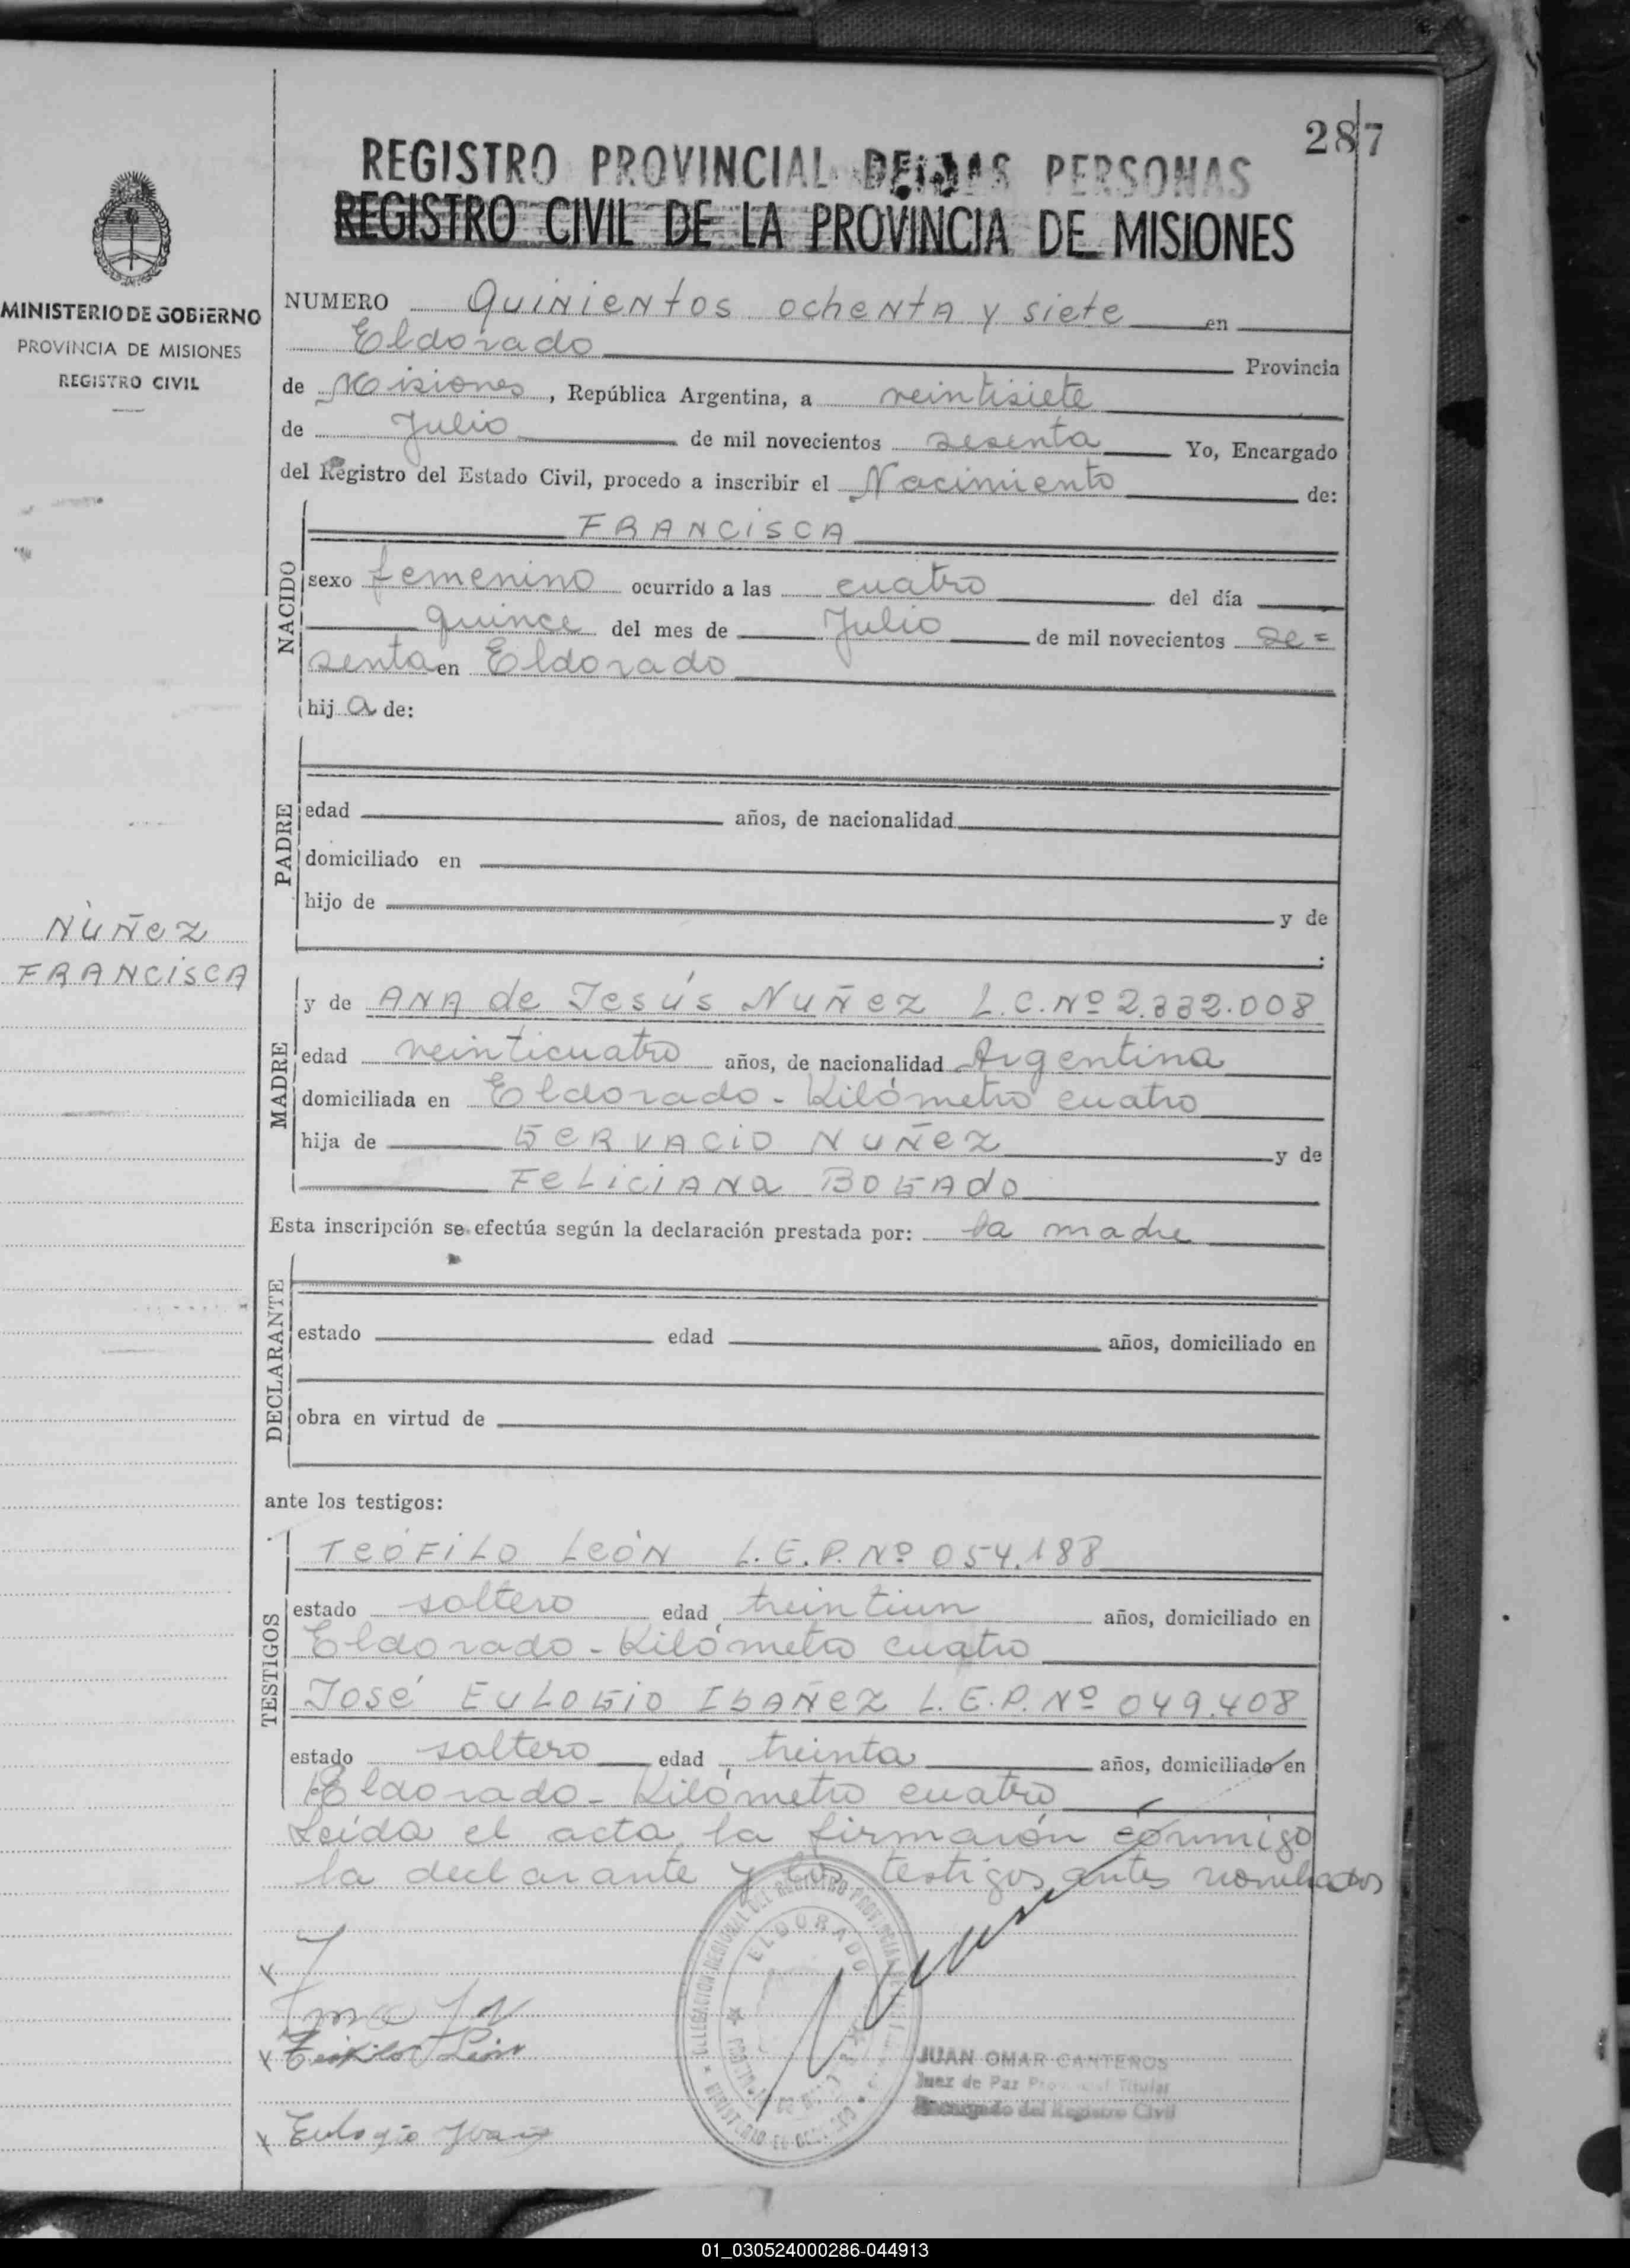 287
REGISTRO PROVINCIAL DE LAS PERSONAS
REGISTRO CIVIL DE LA PROVINCIA DE MISIONES
MINISTERIO DE GOBIERNO
PROVINCIA DE MISIONES
REGISTRO CIVIL
NUMERO Quinientos ochenta y siete en
Eldorado Provincia
de Misiones, República Argentina, a veintisiete
de Julio de mil novecientos sesenta Yo, Encargado
del Registro del Estado Civil, procedo a inscribir el Nacimiento de:
NACIDO
FRANCISCA
sexo femenino ocurrido a las cuatro del día
quince del mes de Julio de mil novecientos se=
senta en Eldorado
hija de:
PADRE
edad años, de nacionalidad
domiciliado en
hijo de y de
NÚÑEZ
FRANCISCA
MADRE
y de ANA de Jesús Nuñez L.C.Nº 2.332.008
edad veinticuatro años, de nacionalidad Argentina
domiciliada en Eldorado - Kilómetro cuatro
hija de GERVACIO NUÑEZ y de
FELICIANA BOGADO
Esta inscripción se efectúa según la declaración prestada por: la madre
DECLARANTE
estado edad años, domiciliado en
obra en virtud de
ante los testigos:
TESTIGOS
TEÓFILO LEÓN L.E.P.Nº 054.188
estado soltero edad treintiun años, domiciliado en
Eldorado - Kilómetro cuatro
José EULOGIO IBAÑEZ L.E.P.Nº 049.408
estado soltero edad treinta años, domiciliado en
Eldorado - Kilómetro cuatro
Leída el acta, la firmarón conmigo
la declarante y los testigos antes nombrados
DELEGACION REGIONAL DEL REGISTRO PROVINCIAL
ELDORADO
Teofilo León
JUAN OMAR CANTEROS
Juez de Paz Titular
Encargado del Registro Civil
Eulogio
01_030524000286-044913